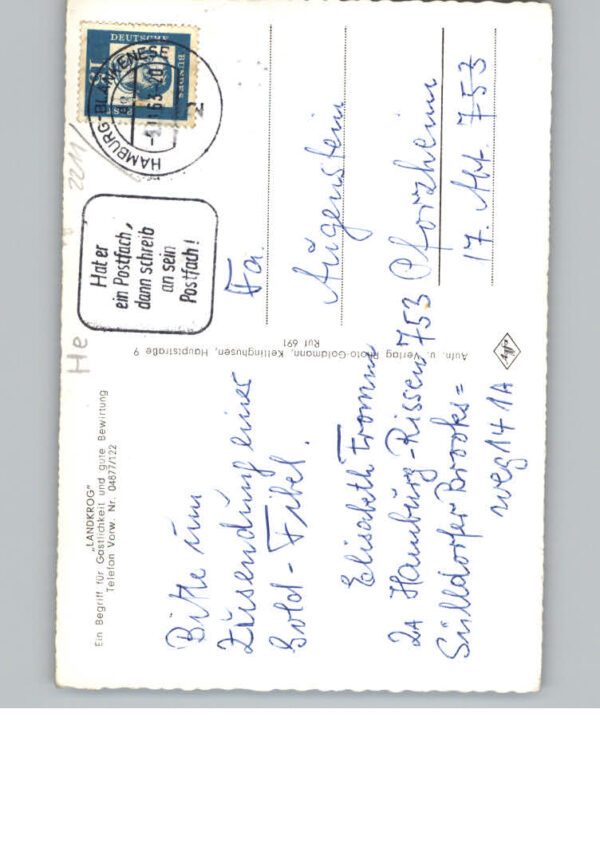 „LANDKROG"
Ein Begriff für Gastlichkeit und gute Bewirtung
Telefon Vorw. Nr. 04877/122
Bitte um
Zusendung einer
Gold-Fibel.
Elisabeth Fromm
2A Hamburg-Rissen
Sülldorfer Brooks=
weg 141A
Aufn. u. Verlag Photo-Goldmann, Kellinghusen, Hauptstraße 9
Ruf 691
Hat er
ein Postfach,
dann schreib
an sein
Postfach!
HAMBURG-BLANKENESE
63-20
DEUTSCHE
BUNDES
15
2211/
He
Fa.
Augenstein
753 Pforzheim
17. Abt. 753